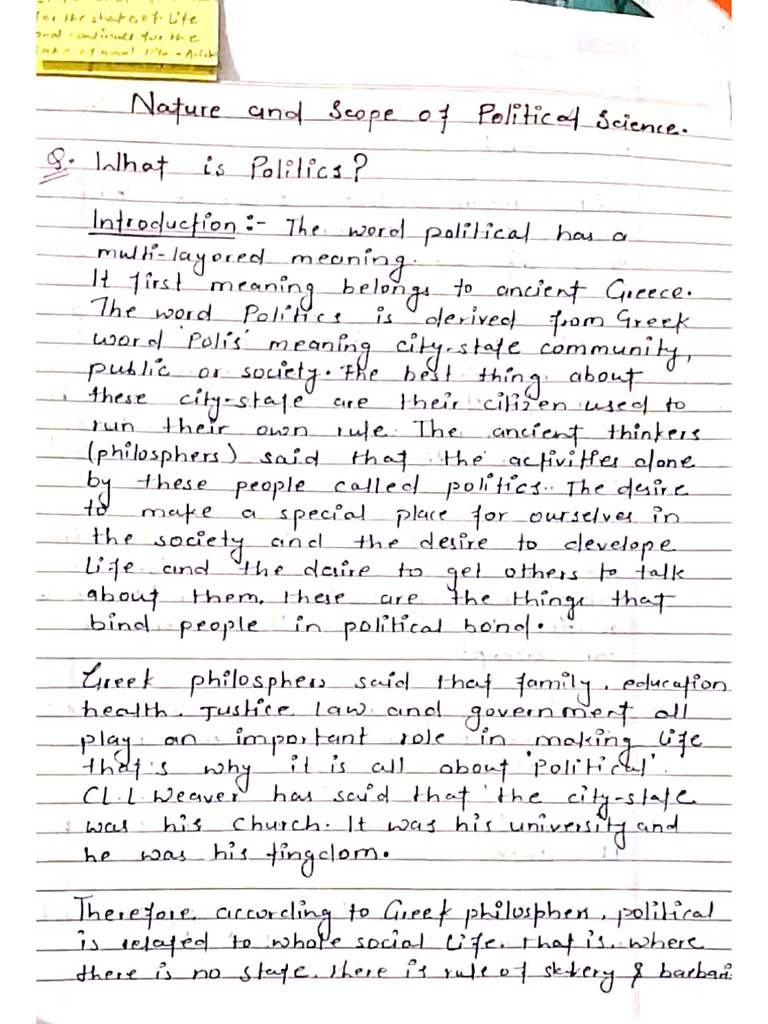 for the shake of life
and continues for the
sake of good life - Arist
Nature and Scope of Political Science.
Q. What is Politics?
Introduction :- The word political has a
multi-layored meaning.
It first meaning belongs to ancient Greece.
The word Politics is derived from Greek
word 'Polis' meaning city-state community,
public or society. The best thing about
these city-state are their citizen used to
run their own rule. The ancient thinkers
(philosphers) said that the activities done
by these people called politics. The desire
to make a special place for ourselves in
the society and the desire to develope
life and the desire to get others to talk
about them. these are the things that
bind people in political bond.
Greek philosphers said that family, education
health, Justice Law and government all
play an important role in making life
that's why it is all about 'Political'.
CL.L Weaver has said that 'the city-state
was his church. It was his university and
he was his tingdom.
Therefore, according to Greek philosphers, political
is related to whole social life. that is, where
there is no state, there is rule of & barbari